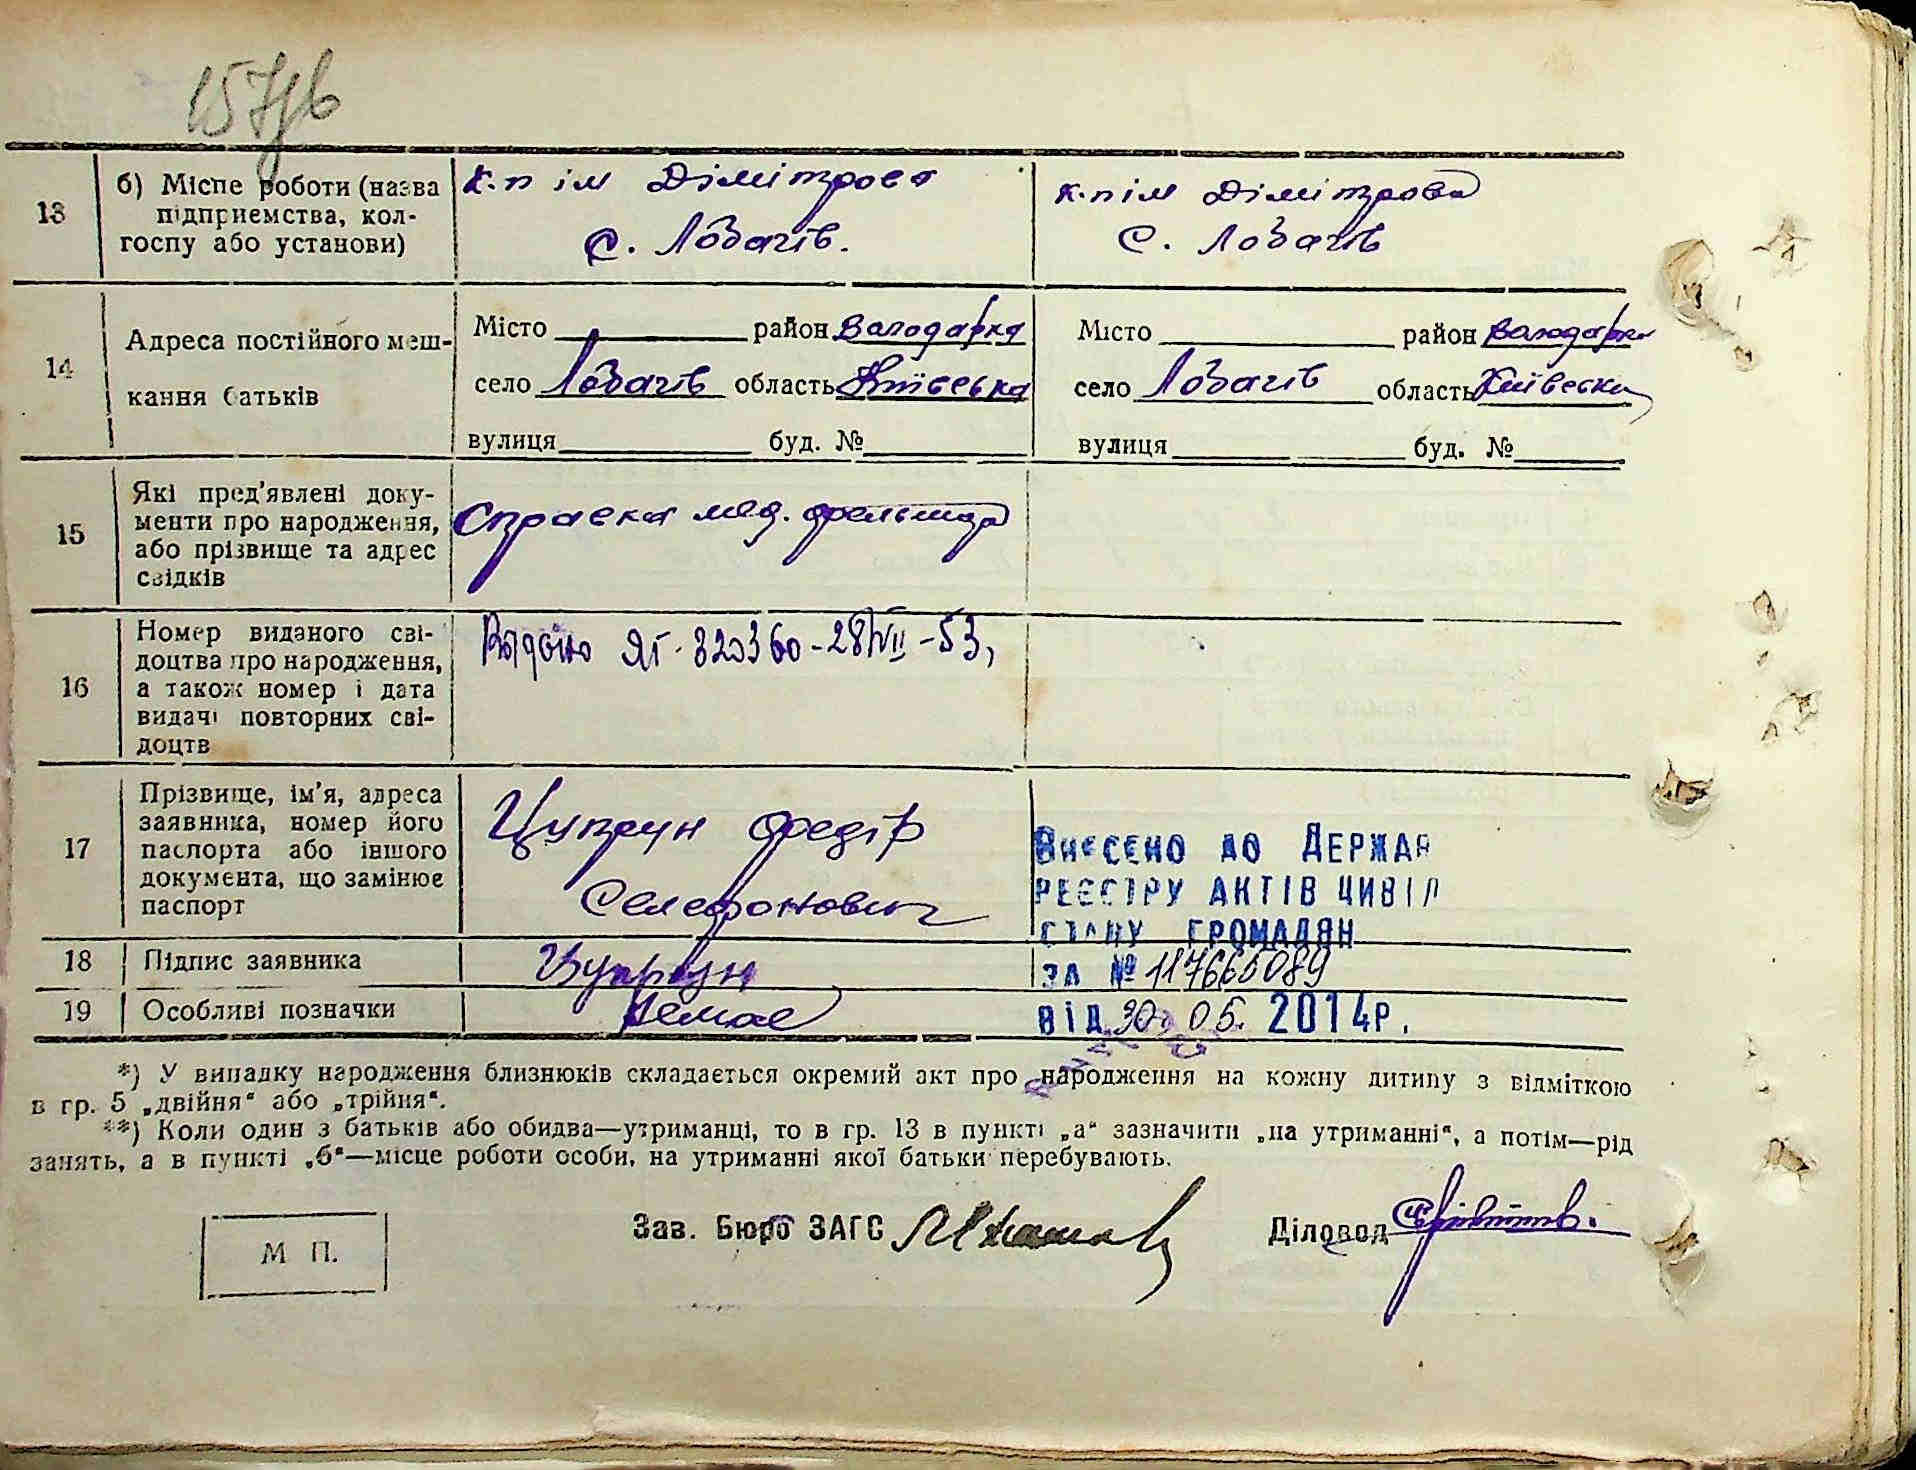 157зв
13
б) Місце роботи (назва
підприємства, кол-
госпу або установи)
к-п ім Дімітрова
с. Лобачів.
к-п ім Дімітрова
с. Лобачів
14
Адреса постійного меш-
кання батьків
Місто район Володарка
село Лобачів область Київська
вулиця буд. №
Місто район Володарка
село Лобачів область Київська
вулиця буд. №
15
Які пред'явлені доку-
менти про народження,
або прізвище та адрес
свідків
Справка мед. фельшера
16
Номер виданого сві-
доцтва про народження,
а також номер і дата
видачі повторних сві-
доцтв
ЯГ-820360-28/VII-53,
17
Прізвище, ім'я, адреса
заявника, номер його
паспорта або іншого
документа, що замінює
паспорт
Цупрун Федір
Селефонович
18
Підпис заявника
Цупрун
19
Особливі позначки
Немає
Внесено до Держав
реєстру актів цивіл
стану громадян
за № 117665089
від 30. 05. 2014р.
*) У випадку народження близнюків складається окремий акт про народження на кожну дитину з відміткою
в гр. 5 „двійня“ або „трійня“.
**) Коли один з батьків або обидва—утриманці, то в гр. 13 в пункті „а“ зазначити „на утриманні“, а потім—рід
занять, а в пункті „б“—місце роботи особи, на утриманні якої батьки перебувають.
М П.
Зав. Бюро ЗАГС
Діловод